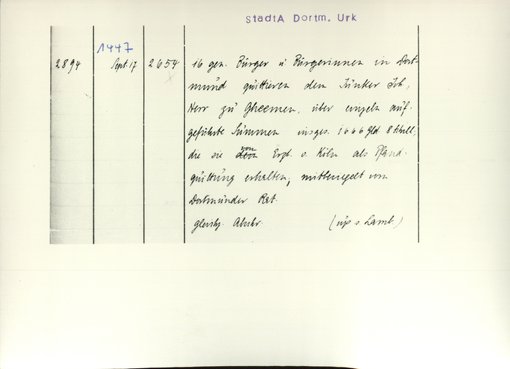 StadtA Dortm. Urk
1447
2894 Sept. 17 2654 16 gen. Bürger u Bürgerinnen in Dort-
mund quittieren dem Junker Joh,
Herr zu Gheemen, über einzeln auf-
geführte Summen insges. 1666 Gld 8 Schill,
die sie von Erzb. v. Köln als Pfand-
quittung erhalten, mitbesiegelt vom
Dortmunder Rat.
gleichz. Abschr. (up v. Lamb.)